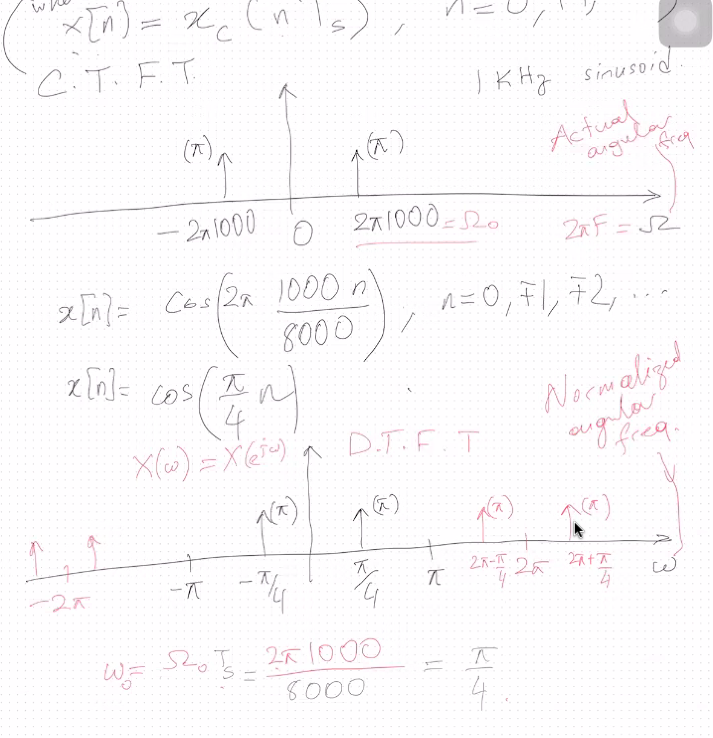 x[n] = x_c(n T_s), n = 0,
C.T.F.T. 1 KHz sinusoid.
Actual angular freq
(π) (π)
-2π1000 0 2π1000 = Ω₀ 2πF = Ω
x[n] = cos(2π 1000 n / 8000), n = 0, ∓1, ∓2, ...
x[n] = cos(π/4 n)
Normalized angular freq.
X(ω) = X(e^jω) D.T.F.T
(π) (π) (π) (π)
-2π -π -π/4 π/4 π 2π-π/4 2π 2π+π/4 ω
ω₀ = Ω₀ T_s = 2π1000 / 8000 = π/4.